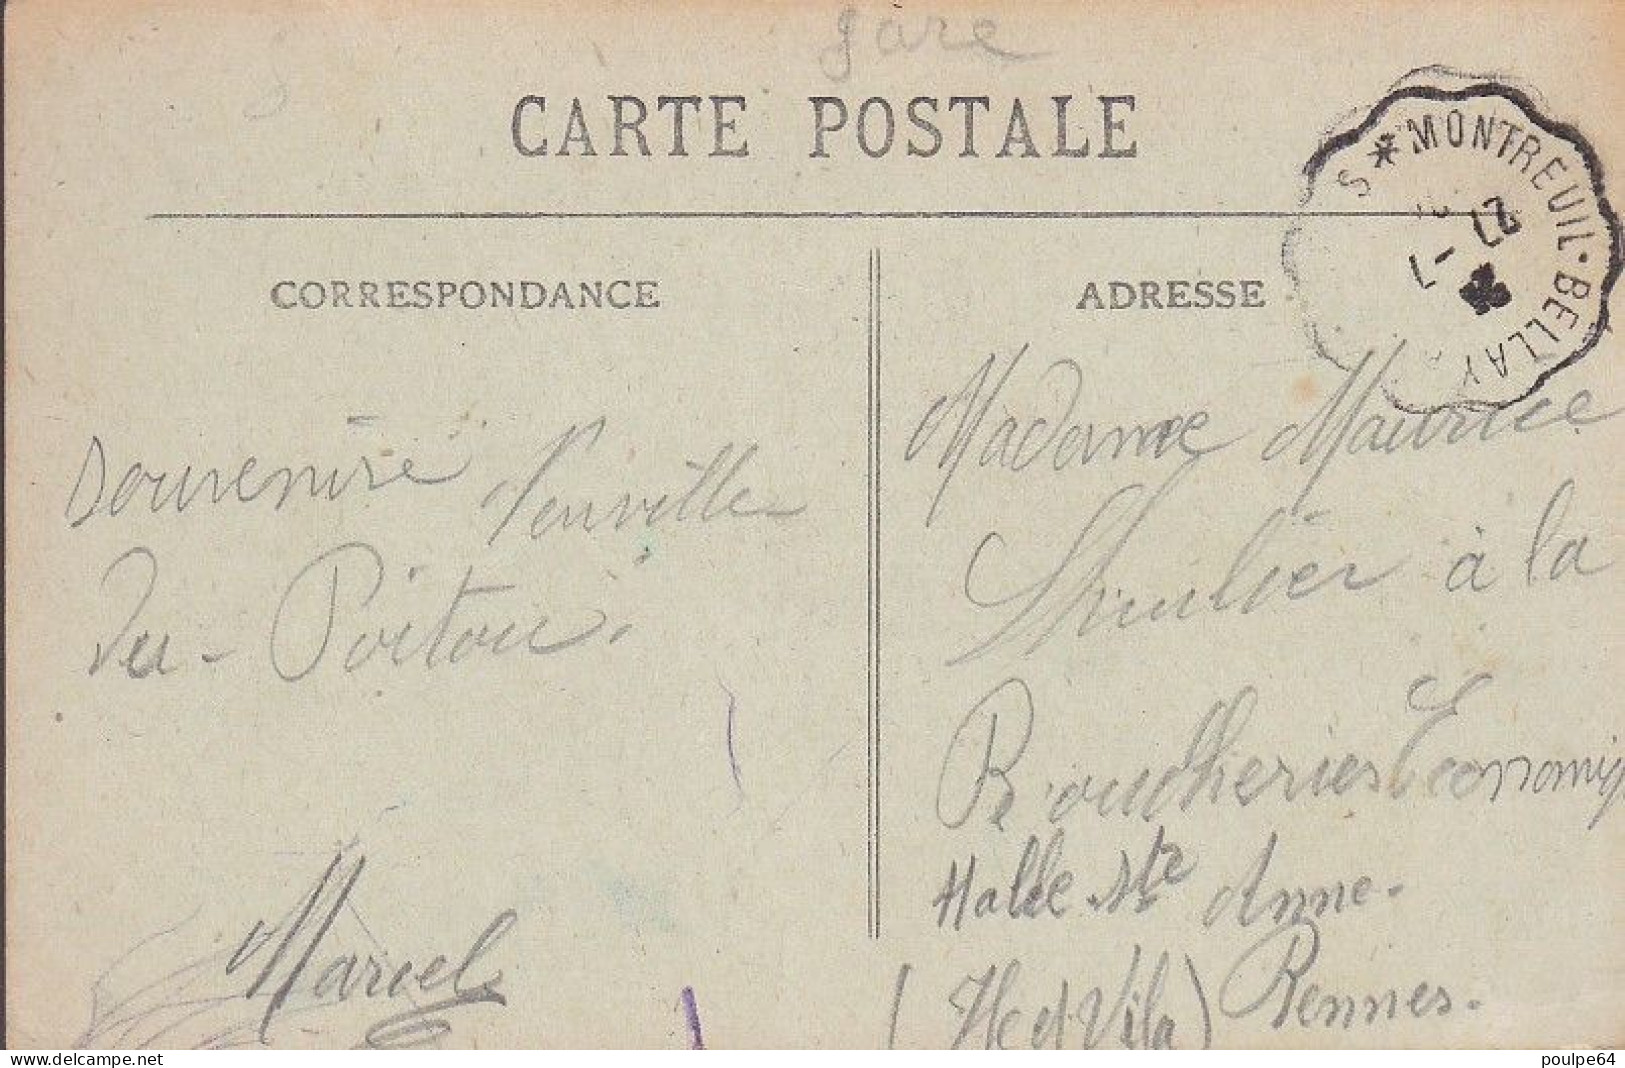 gare
CARTE POSTALE
S * MONTREUIL-BELLAY
27 -7
CORRESPONDANCE
ADRESSE
Souvenire Neuville
Du - Poitou.
Marcel
Madame Maurice
à la
Boucheries Economiq
Halle Ste Anne.
(Ile et Vila) Rennes.
www.delcampe.net
poulpe64